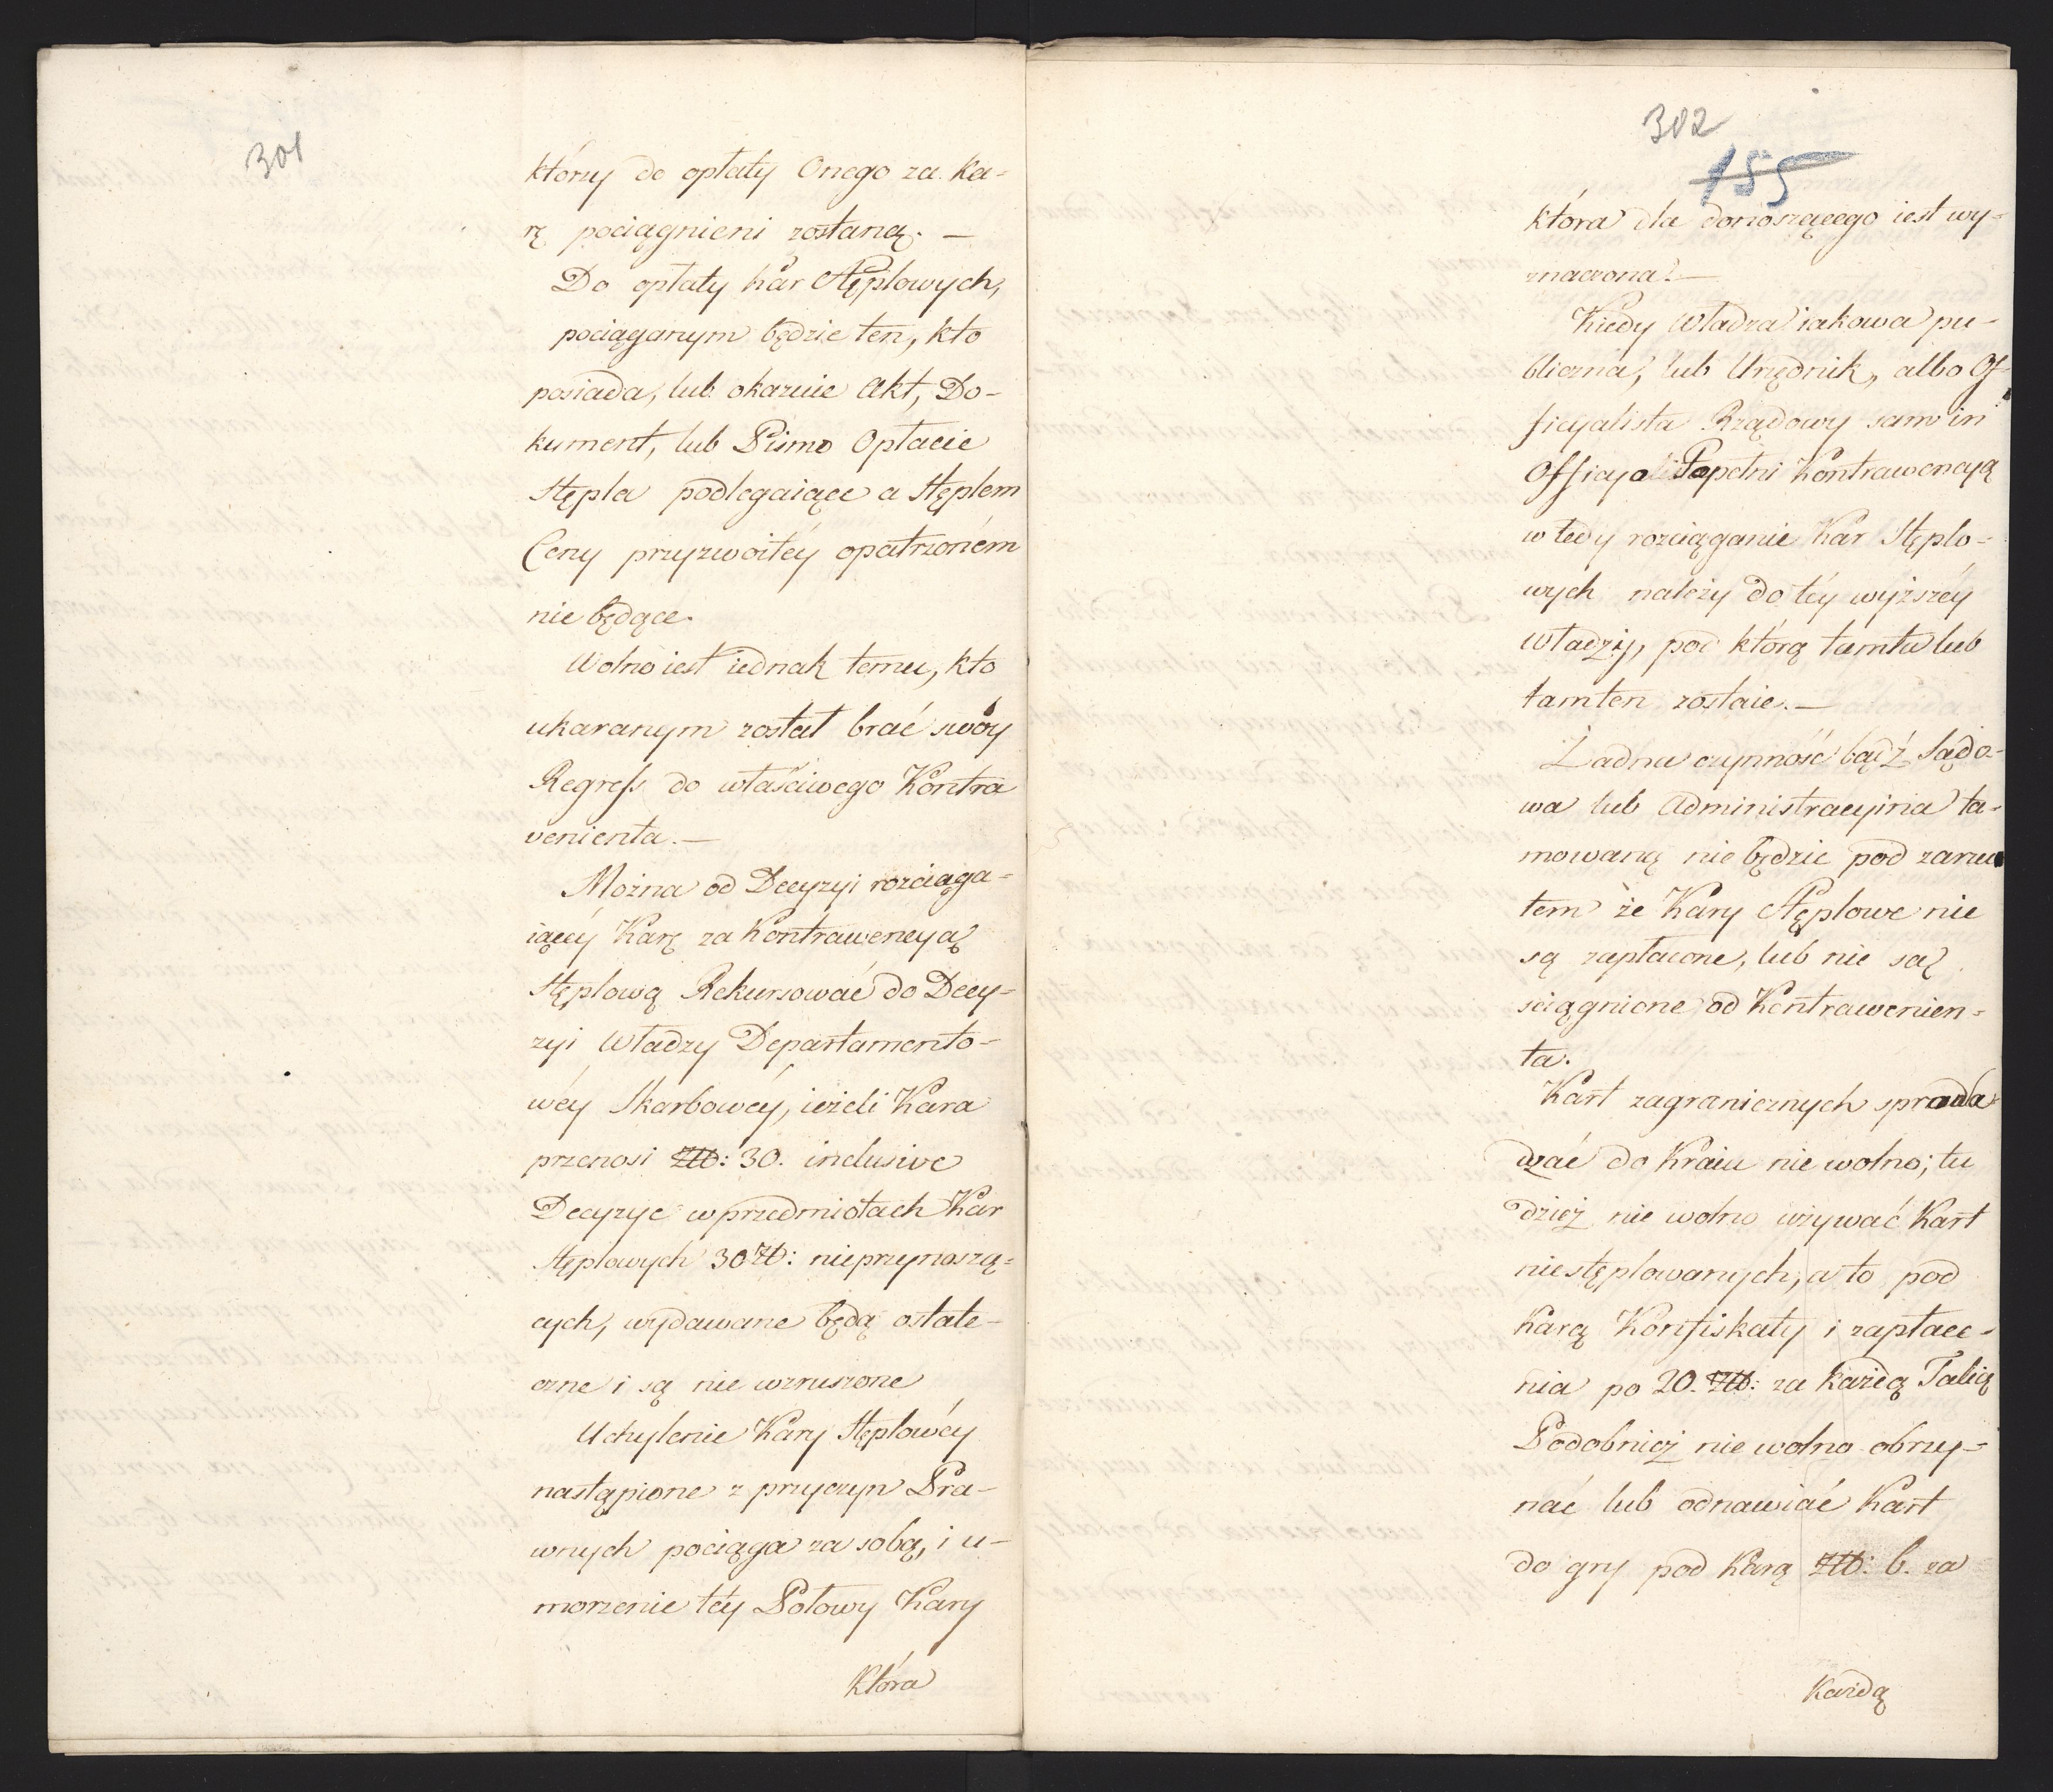 301
którzy do opłaty Onego za Ka-
rę pociągnieni zostaną. —
Do opłaty kar Stęplowych,
pociąganym będzie ten, kto
posiada, lub okazuie Akt, Do-
kument, lub Pismo Opłacie
Stępla podlegaiące a Stęplem
Ceny przyzwoitéy opatrzoném
nie będące.
Wolno iest iednak temu, kto
ukaranym został brać swóy
Regress do właściwego Kontra
venienta. —
Można od Decyzyi rozciąga-
iącéy Karę za Kontrawencyą
Stęplową Rekursować do Decy-
zyi Władzy Departamento-
wéy Skarbowéy, ieżeli Kara
przenosi Złł: 30. inclusive
Decyzye w przedmiotach Kar
Stęplowych 30 Zł: nieprzynoszą-
cych, wydawane będą ostate-
czne i są nie wzruszone
Uchylenie Kary Stęplowéy
nastąpione z przyczyn Pra-
wnych pociąga za sobą, i u-
morzenie téy Połowy Kary
która
302
155
która dla donoszącego iest wy-
znaczona. —
Kiedy Władza iakowa pu-
bliczna, lub Urzędnik, albo Of-
ficyalista Rządowy sam in
Officyo Popełni Kontrawencyą
wtedy rozciąganie Kar Stęplo-
wych należy do téy wyższéy
Władzy, pod którą tamta lub
tamten zostaie. —
Żadna czynność bądź Sądo-
wa lub Administracyina ta-
mowaną nie będzie pod zarzu
tem że Kary Stęplowe nie
są zapłacone, lub nie są
ściągnione od Kontrawenien-
ta.
Kart zagranicznych sprowa-
dzać do Kraiu nie wolno; tu
dzież nie wolno używać Kart
niestęplowanych, a to pod
Karą Konfiskaty i zapłace-
nia po 20. Złł: za każdą Talią
Podobnież nie wolno obrzy-
nać lub odnawiać Kart
do gry pod Karą Złł: 6. za
Każdą